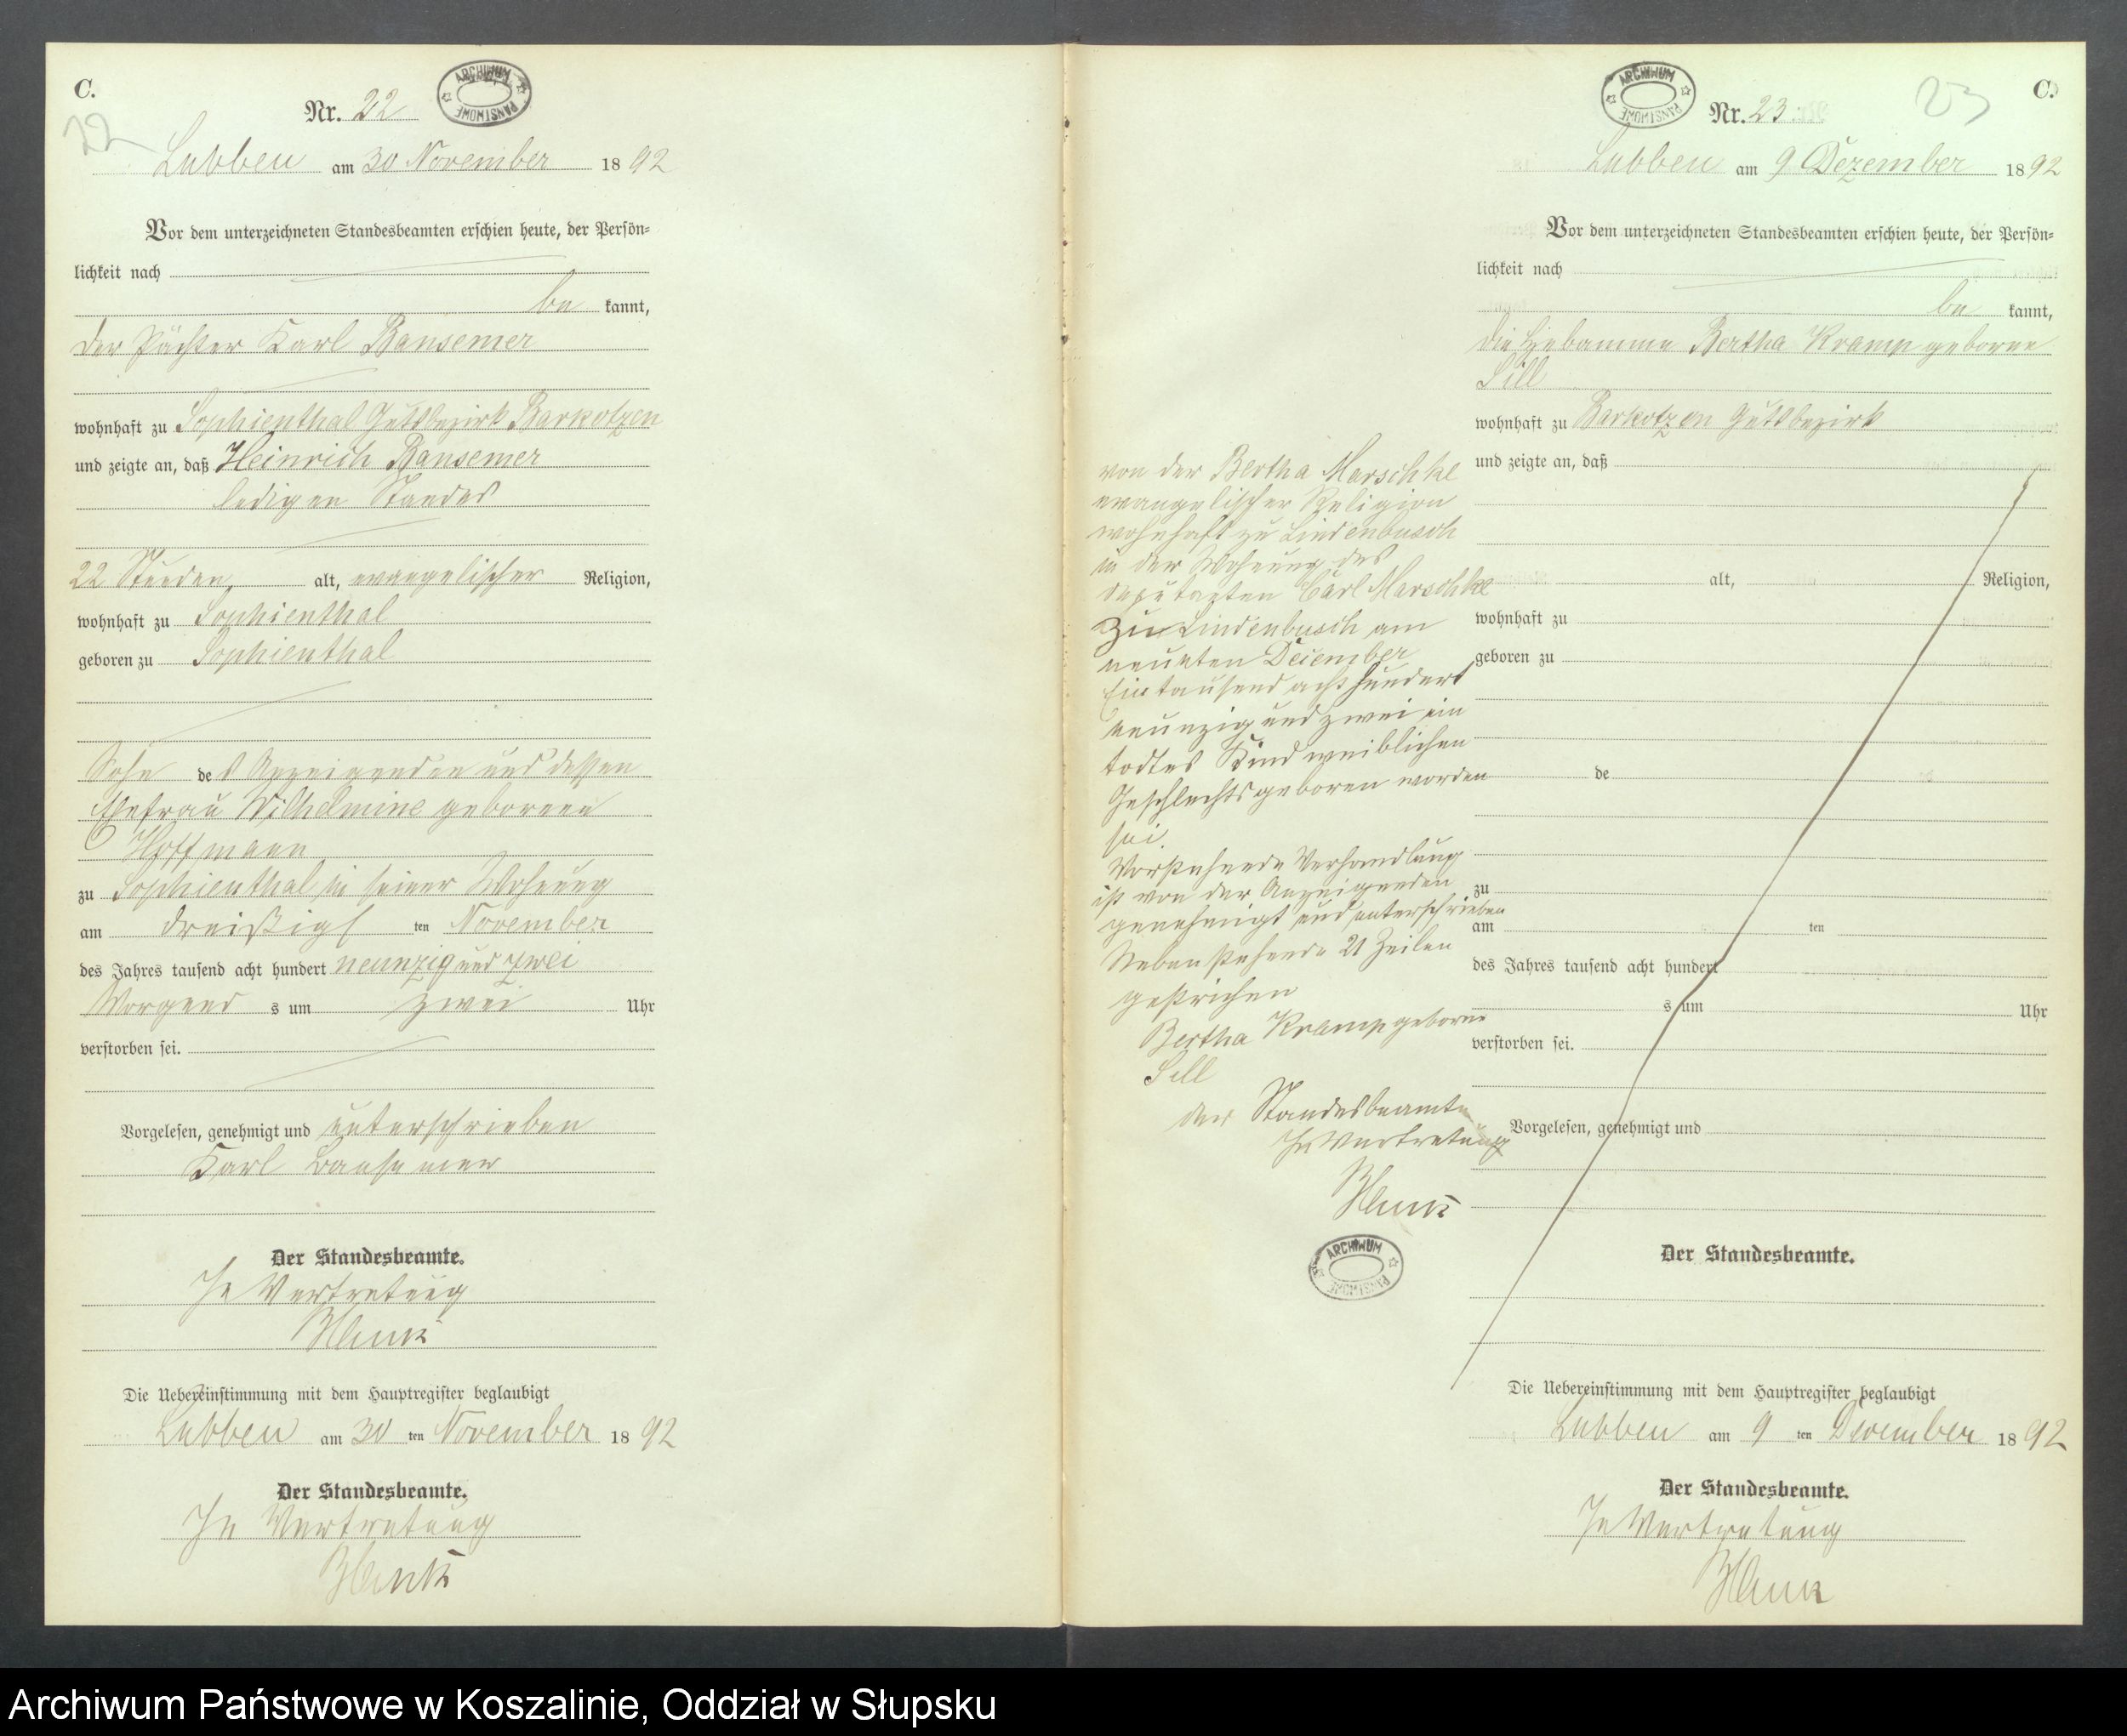 C.
22
Nr. 22
ARCHIWUM PAŃSTWOWE
Lubben am 30 November 1892
Vor dem unterzeichneten Standesbeamten erschien heute, der Persön-
lichkeit nach
be kannt,
der Pächter Karl Bansemer
wohnhaft zu Sophienthal Gutsbezirk Barkotzen
und zeigte an, daß Heinrich Bansemer
ledigen Standes
22 Stunden alt, evangelischer Religion,
wohnhaft zu Sophienthal
geboren zu Sophienthal
Sohn des Anzeigenden und dessen
Ehefrau Wilhelmine geborenen
Hoffmann
zu Sophienthal in seiner Wohnung
am dreißigsten November
des Jahres tausend acht hundert neunzig und zwei
Morgens um zwei Uhr
verstorben sei.
Vorgelesen, genehmigt und unterschrieben
Karl Bansemer
Der Standesbeamte.
In Vertretung
Die Uebereinstimmung mit dem Hauptregister beglaubigt
Lubben am 30 ten November 1892
Der Standesbeamte.
In Vertretung
C.
23
Nr. 23
ARCHIWUM PAŃSTWOWE
Lubben am 9 Dezember 1892
Vor dem unterzeichneten Standesbeamten erschien heute, der Persön-
lichkeit nach
be kannt,
die Hebamme Bertha Kramp geborne
Sill
wohnhaft zu Barkotzen Gutsbezirk
und zeigte an, daß
alt, Religion,
wohnhaft zu
geboren zu
de
zu
am ten
des Jahres tausend acht hundert
s um Uhr
verstorben sei.
Vorgelesen, genehmigt und
von der Bertha Marschke
evangelischer Religion
wohnhaft zu Lindenbusch
in der Wohnung des
deputanten Carl Marschke
zu Lindenbusch am
neunten Decemher
Ein tausend acht hundert
neunzig und zwei ein
todtes Kind weiblichen
Geschlechts geboren worden
sei.
Vorstehende Verhandlung
ist von der Anzeigenden
genehmigt und unterschrieben
Nebenstehende 21 Zeilen
gestrichen
Bertha Kramp geborne
Sill
der Standesbeamte
In Vertretung
ARCHIWUM PAŃSTWOWE
Der Standesbeamte.
Die Uebereinstimmung mit dem Hauptregister beglaubigt
Lubben am 9 ten December 1892
Der Standesbeamte.
In Vertretung
Archiwum Państwowe w Koszalinie, Oddział w Słupsku